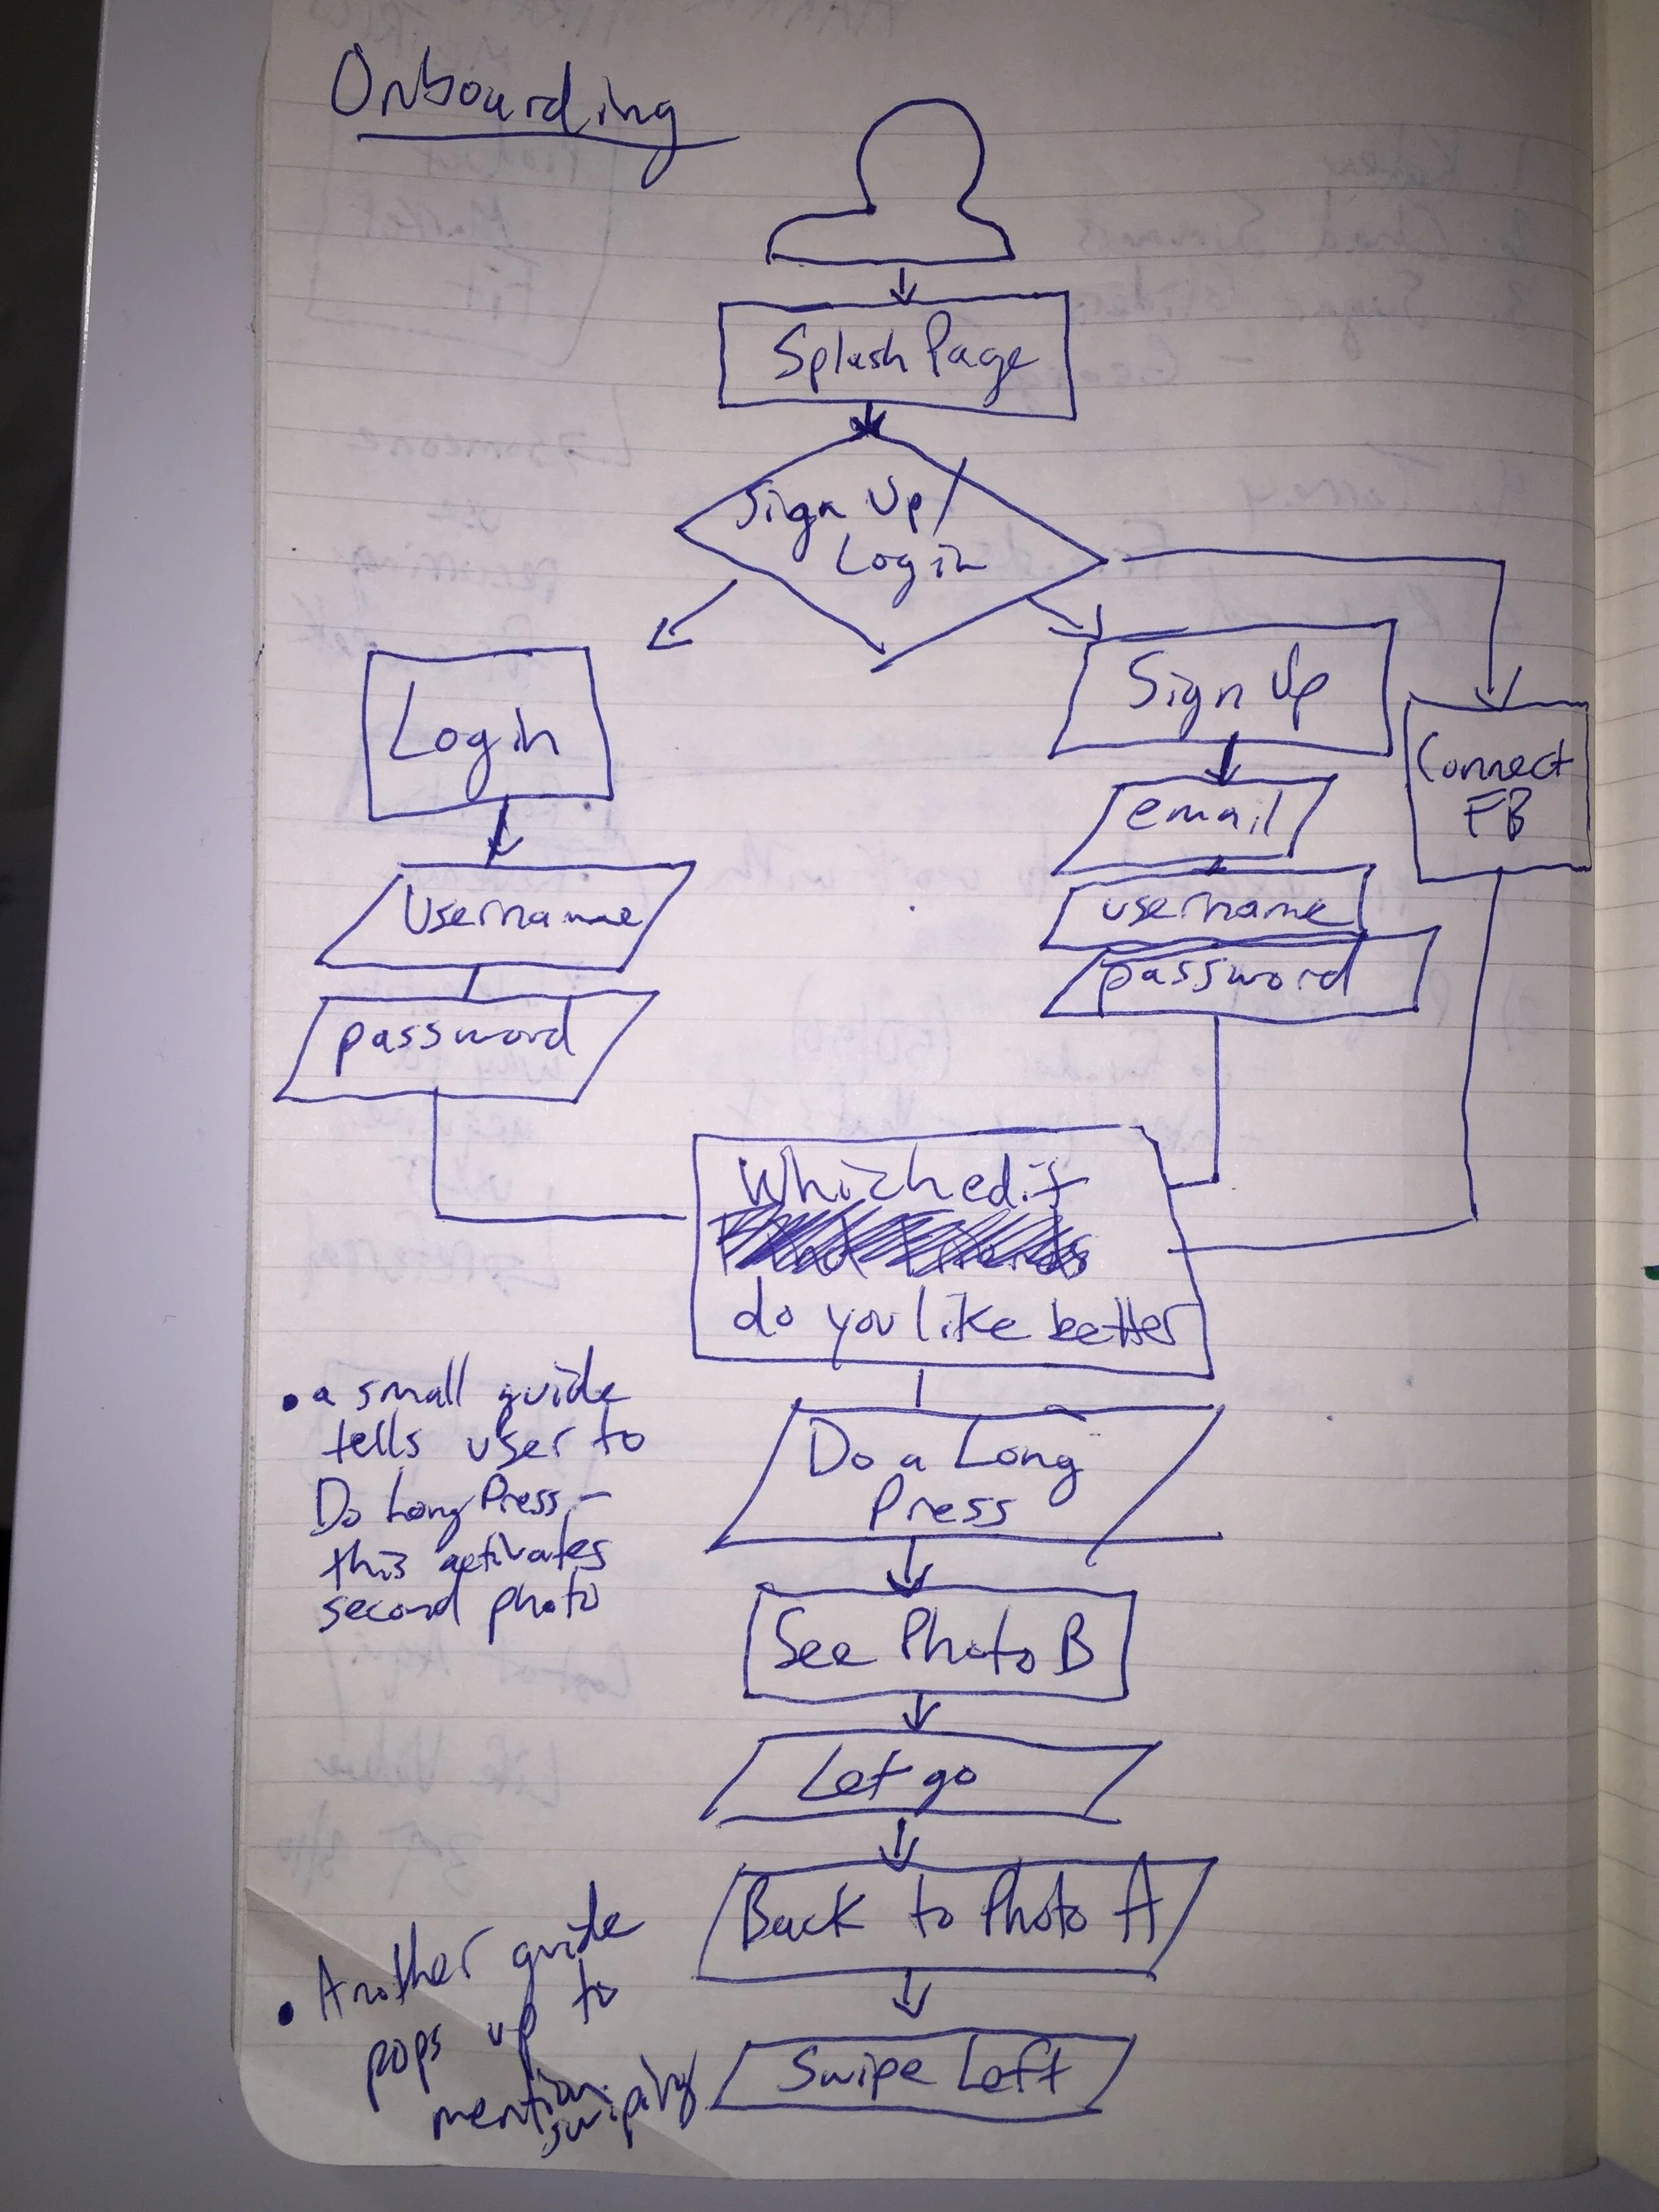 Onboarding
Splash Page
Sign Up/
Login
Login
Sign Up
Connect
FB
email
Username
username
password
password
Which edit
do you like better
• a small guide
tells user to
Do Long Press -
this activates
second photo
Do a Long
Press
See Photo B
Let go
Back to Photo A
• Another guide
pops up to
mention
swiping
Swipe Left